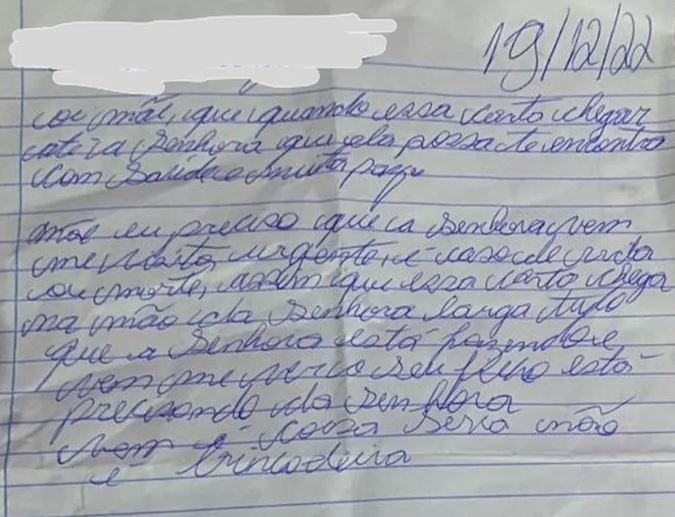 19/12/22
oi mãe, que quando essa carta chegar
até a senhora que ela possa te encontra
com Saúde e muita paz
mãe eu preciso que a senhora vem
me visita urgente, é caso de vida
ou morte, assim que essa carta chega
na mão da senhora larga tudo
que a senhora está fazendo e
vem me ver o seu filho está
precisando da senhora
vem é coisa seria não
é brincadeira